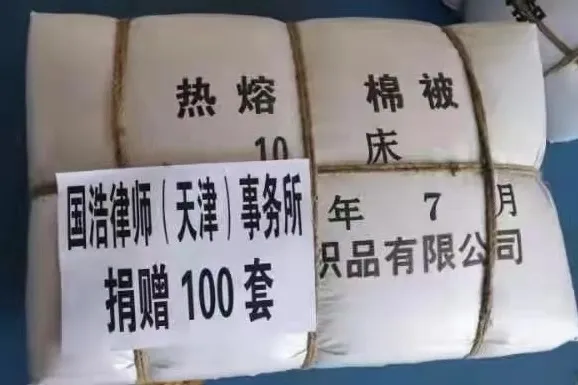 热熔棉被
10床
年7月
织品有限公司
国浩律师（天津）事务所
捐赠100套